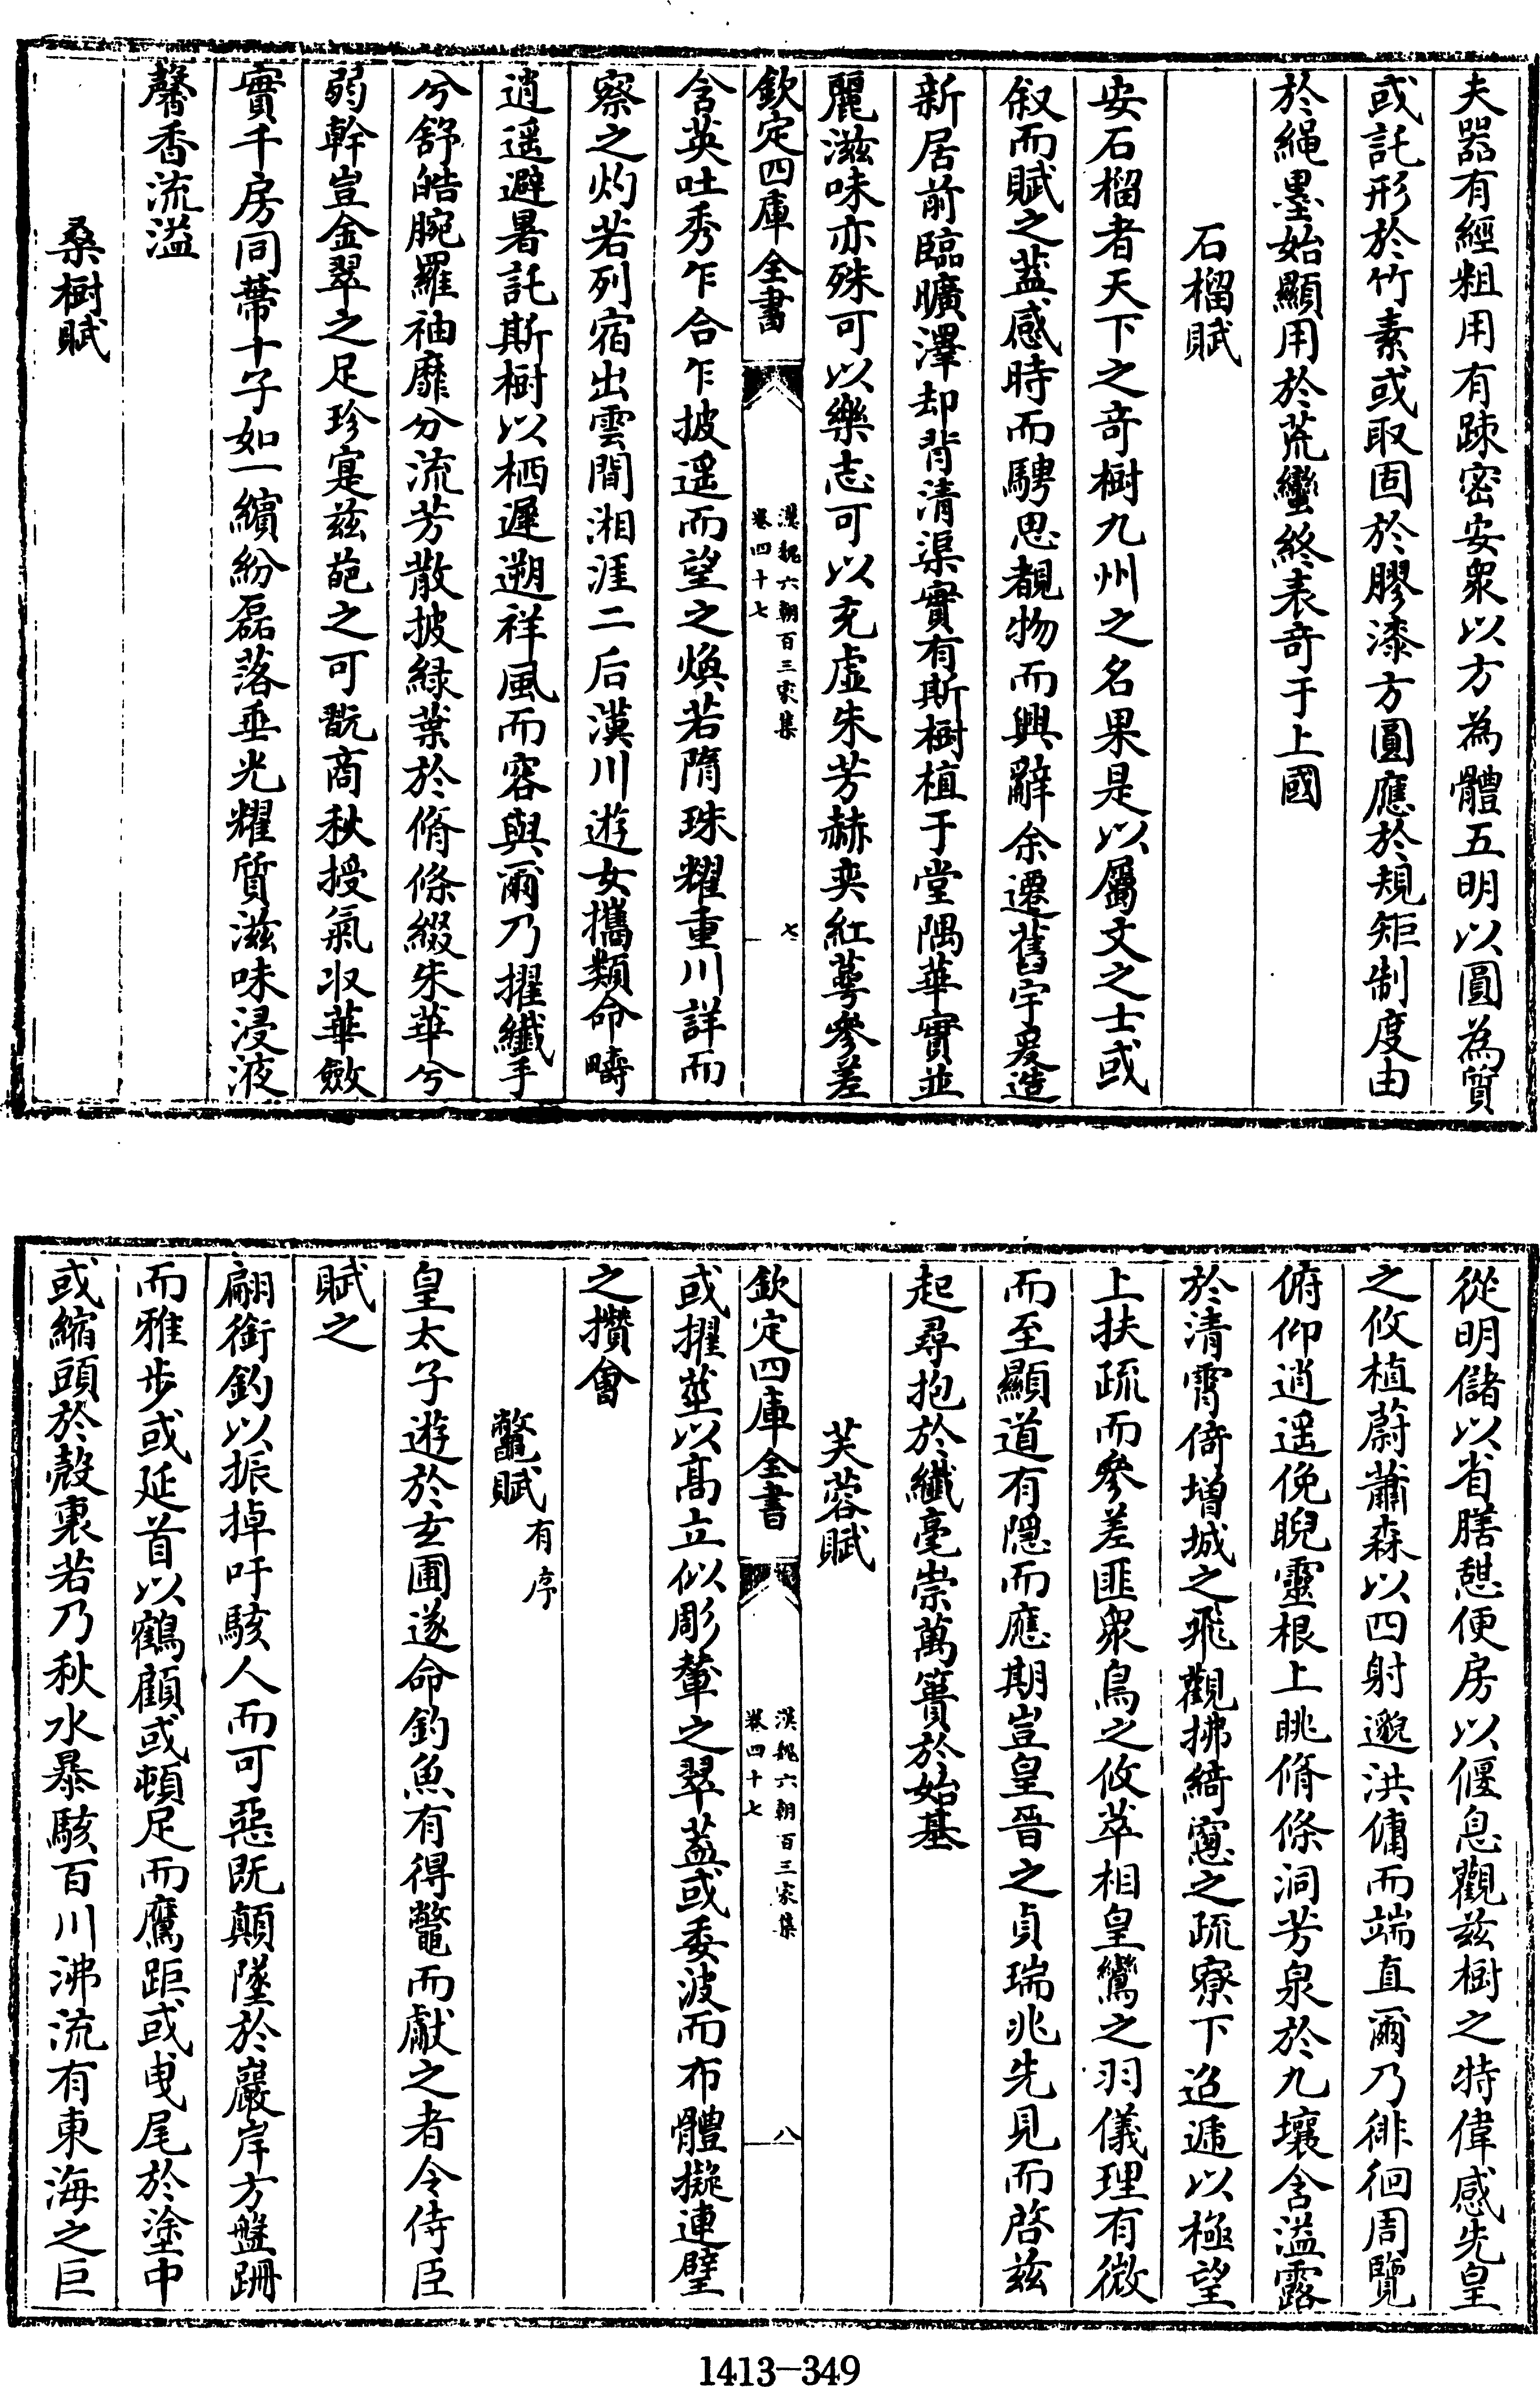 夫器有經粗用有疎密安衆以方為體五明以圓為質
或託形於竹素或取固於膠漆方圓應於規矩制度由
於繩墨始顯用於荒蠻終表竒于上國
石榴賦
安石榴者天下之竒樹九州之名果是以屬文之士或
叙而賦之蓋感時而騁思覩物而興辭余遷舊宇爰造
新居前臨曠澤却背清渠實有斯樹植于堂隅華實並
麗滋味亦殊可以樂志可以充虚朱芳赫奕紅萼參差
欽定四庫全書
漢魏六朝百三家集
卷四十七
七
含英吐秀乍合乍披遥而望之煥若隋珠耀重川詳而
察之灼若列宿出雲間湘涯二后漢川遊女攜類命疇
逍遥避暑託斯樹以栖遲遡祥風而容與爾乃擢纖手
兮舒皓腕羅袖靡兮流芳散披緑葉於脩條綴朱華兮
弱幹豈金翠之足珍寔兹葩之可翫商秋授氣収華斂
實千房同蔕十子如一繽紛磊落垂光耀質滋味浸液
馨香流溢
桑樹賦
從明儲以省膳憇便房以偃息觀兹樹之特偉感先皇
之攸植蔚蕭森以四射邈洪傭而端直爾乃徘徊周覽
俯仰逍遥俛睨靈根上眺脩條洞芳泉於九壤含溢露
於清霄倚增城之飛觀拂綺窻之疏寮下迢遞以極望
上扶疏而參差匪衆鳥之攸萃相皇鸞之羽儀理有微
而至顯道有隠而應期豈皇晉之貞瑞兆先見而啓兹
起尋抱於纖毫崇萬簣於始基
芙蓉賦
欽定四庫全書
漢魏六朝百三家集
卷四十七
八
或擢莖以髙立似彫輦之翠葢或委波而布體擬連璧
之攢會
鼈賦有序
皇太子遊於玄圃遂命釣魚有得鼈而獻之者令侍臣
賦之
翩銜釣以振掉吁駭人而可惡既顛墜於巖岸方盤跚
而雅歩或延首以鶴顧或頓足而鷹距或曳尾於塗中
或縮頭於殼裏若乃秋水暴駭百川沸流有東海之巨
1413—349